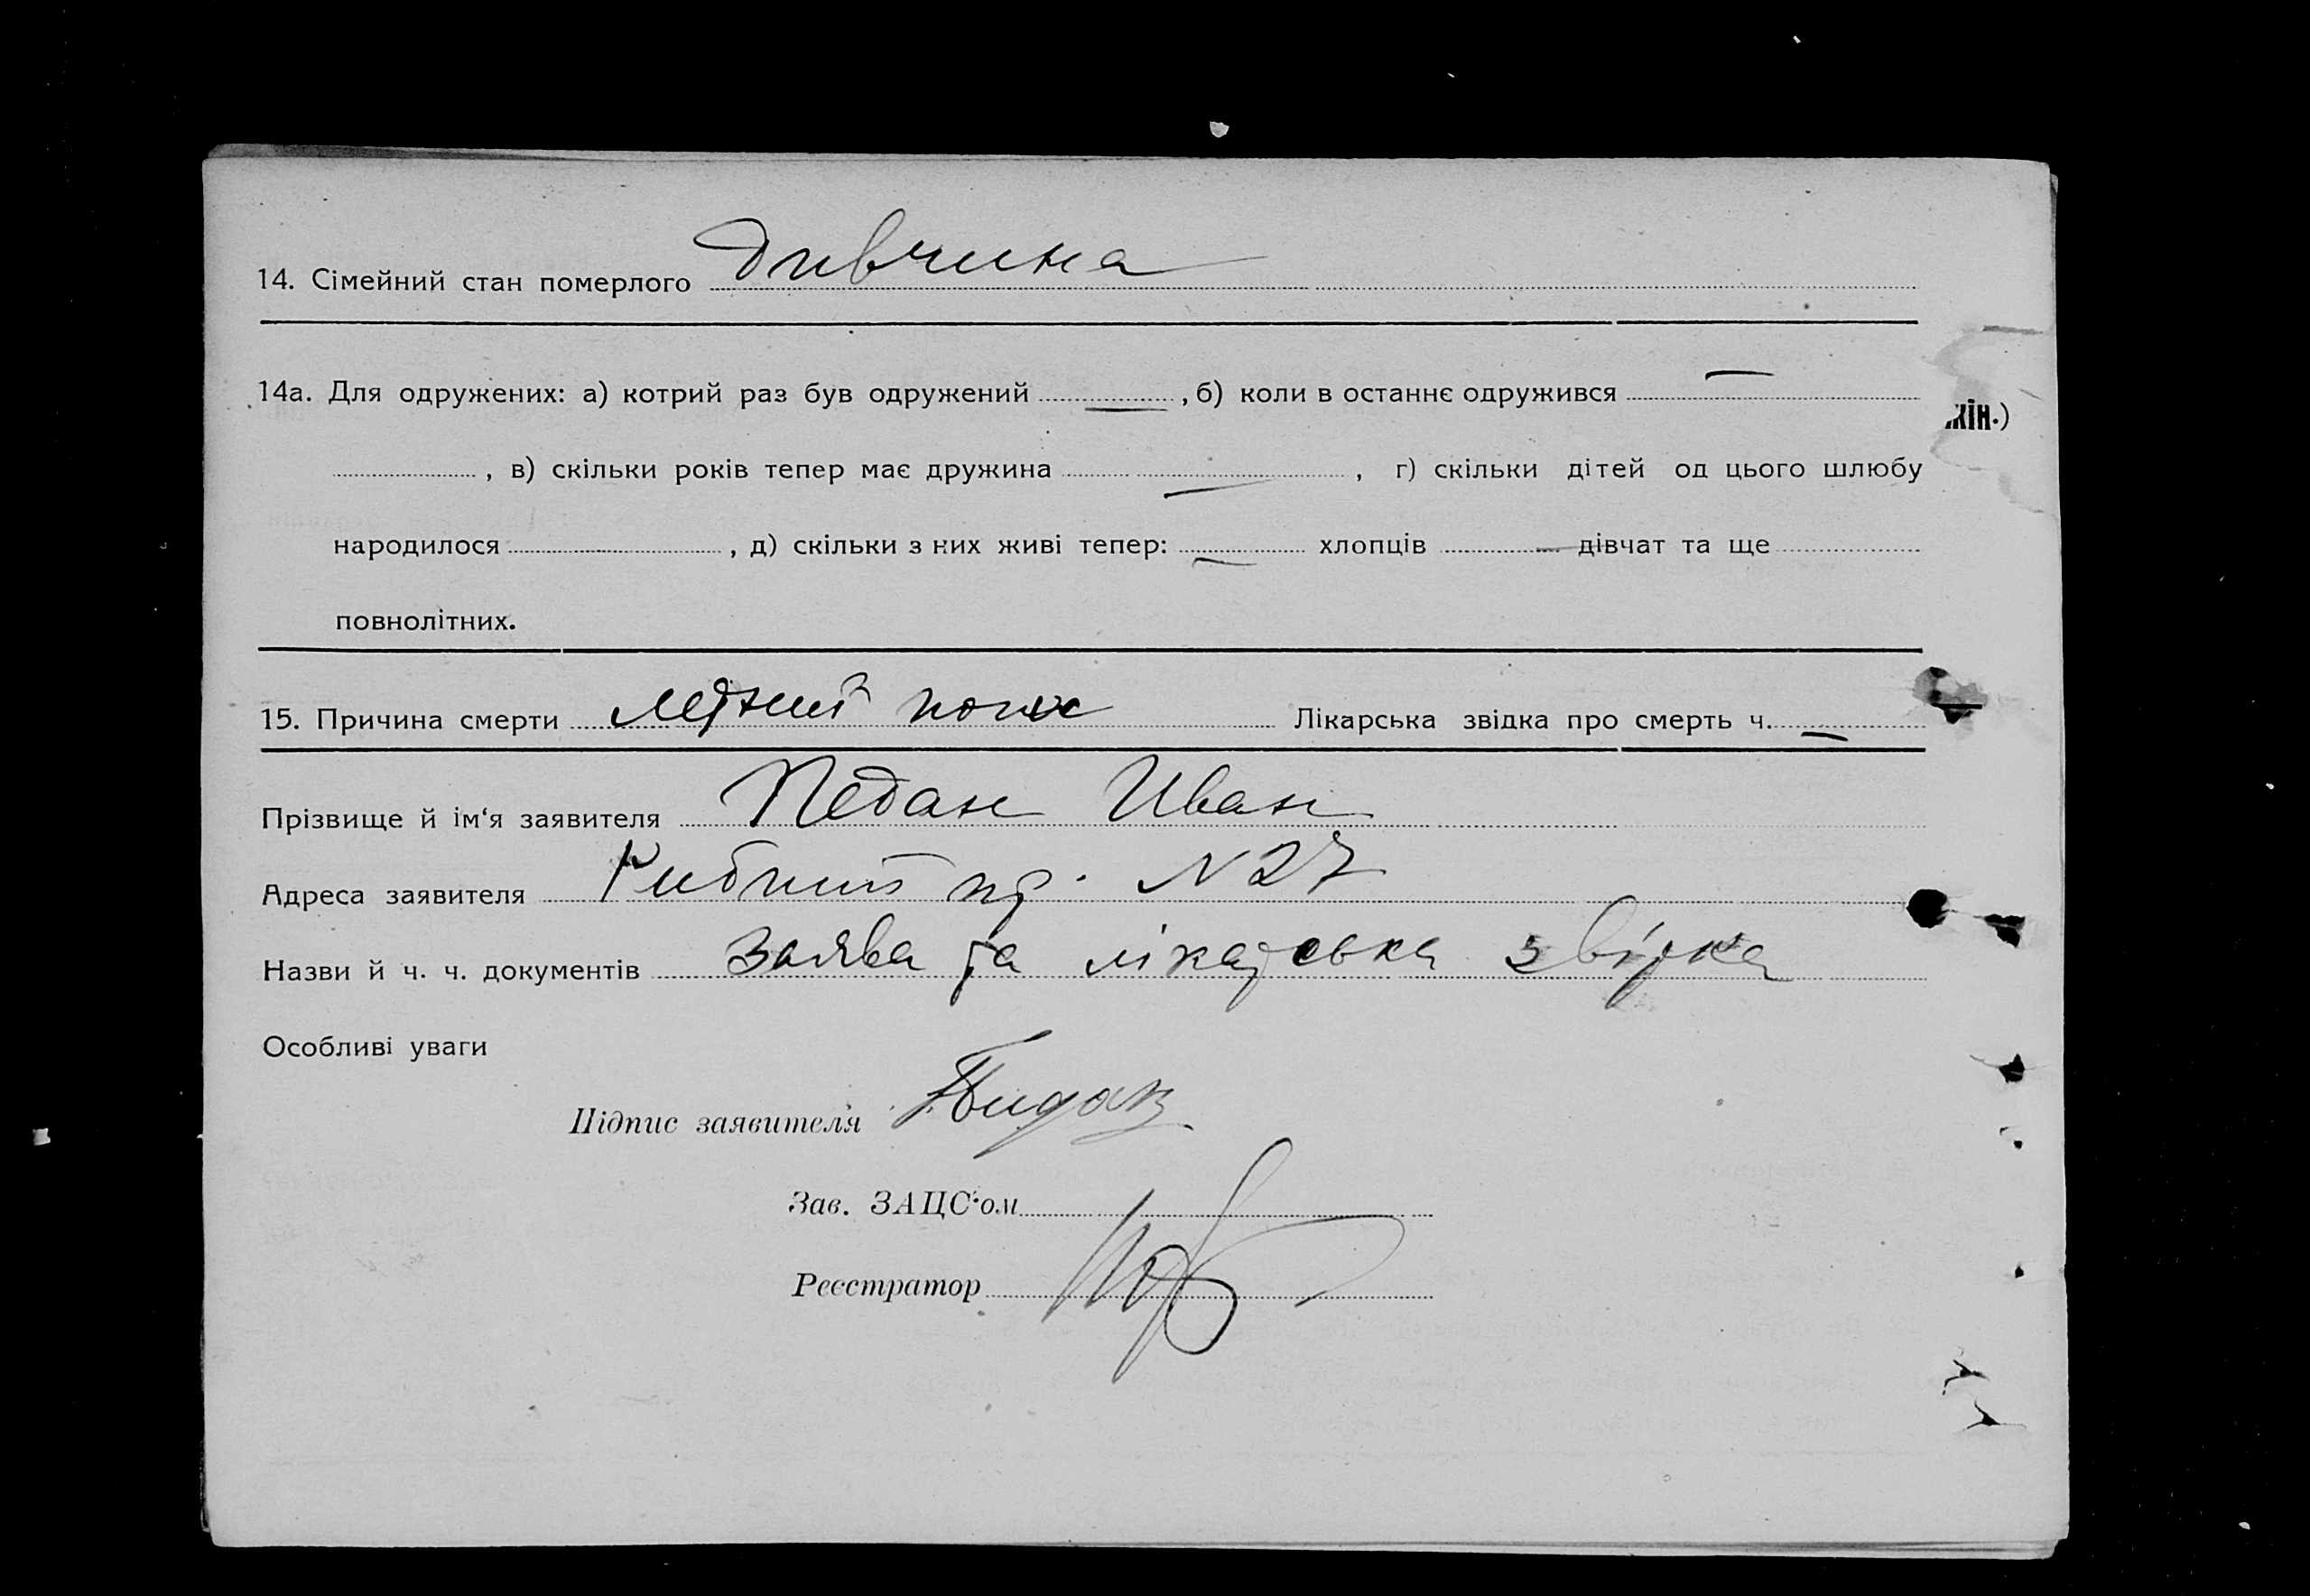 14. Сімейний стан померлого дивчина
14а. Для одружених: а) котрий раз був одружений — , б) коли в останнє одружився —
жін.)
, в) скільки років тепер має дружина — , г) скільки дітей од цього шлюбу
народилося , д) скільки з них живі тепер: — хлопців — дівчат та ще
повнолітних.
15. Причина смерти Лікарська звідка про смерть ч. —
Прізвище й ім‘я заявителя Педан Иван
Адреса заявителя пр. N 27
Назви й ч. ч. документів заява та лікарська звідка
Особливі уваги
Підпис заявителя
Зав. ЗАЦС‘ом
Реєстратор